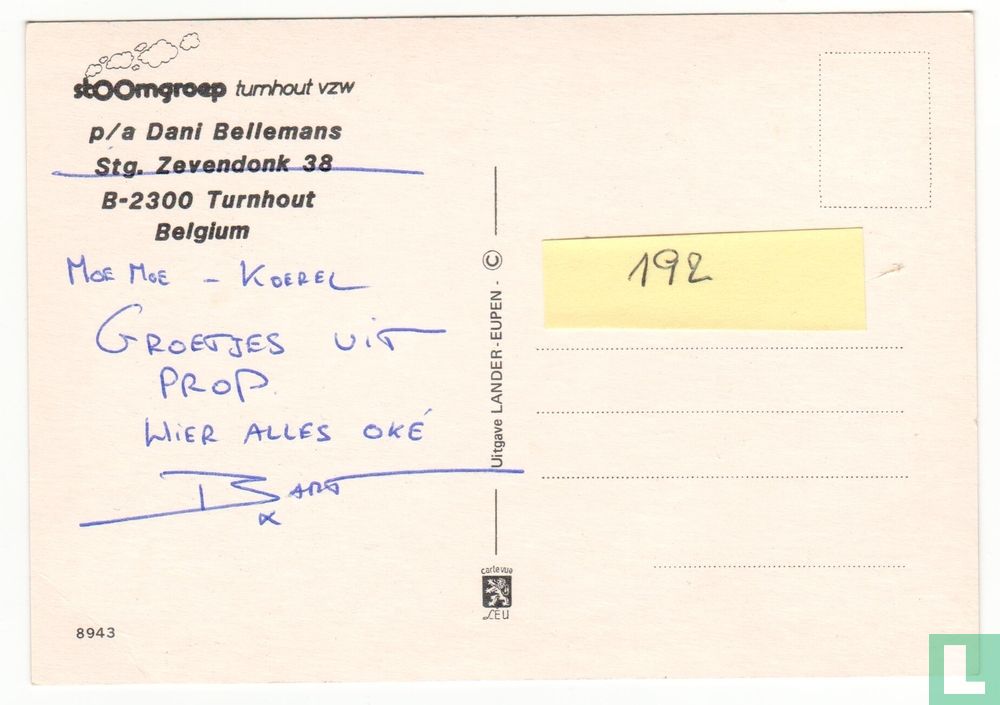 stoomgroep turnhout vzw
p/a Dani Bellemans
Stg. Zevendonk 38
B-2300 Turnhout
Belgium
MOE MOE - KOEREL
GROETJES UIT
PROP.
HIER ALLES OKÉ
BART
x
8943
Uitgave LANDER-EUPEN - ©
carte vue
LEU
192
L